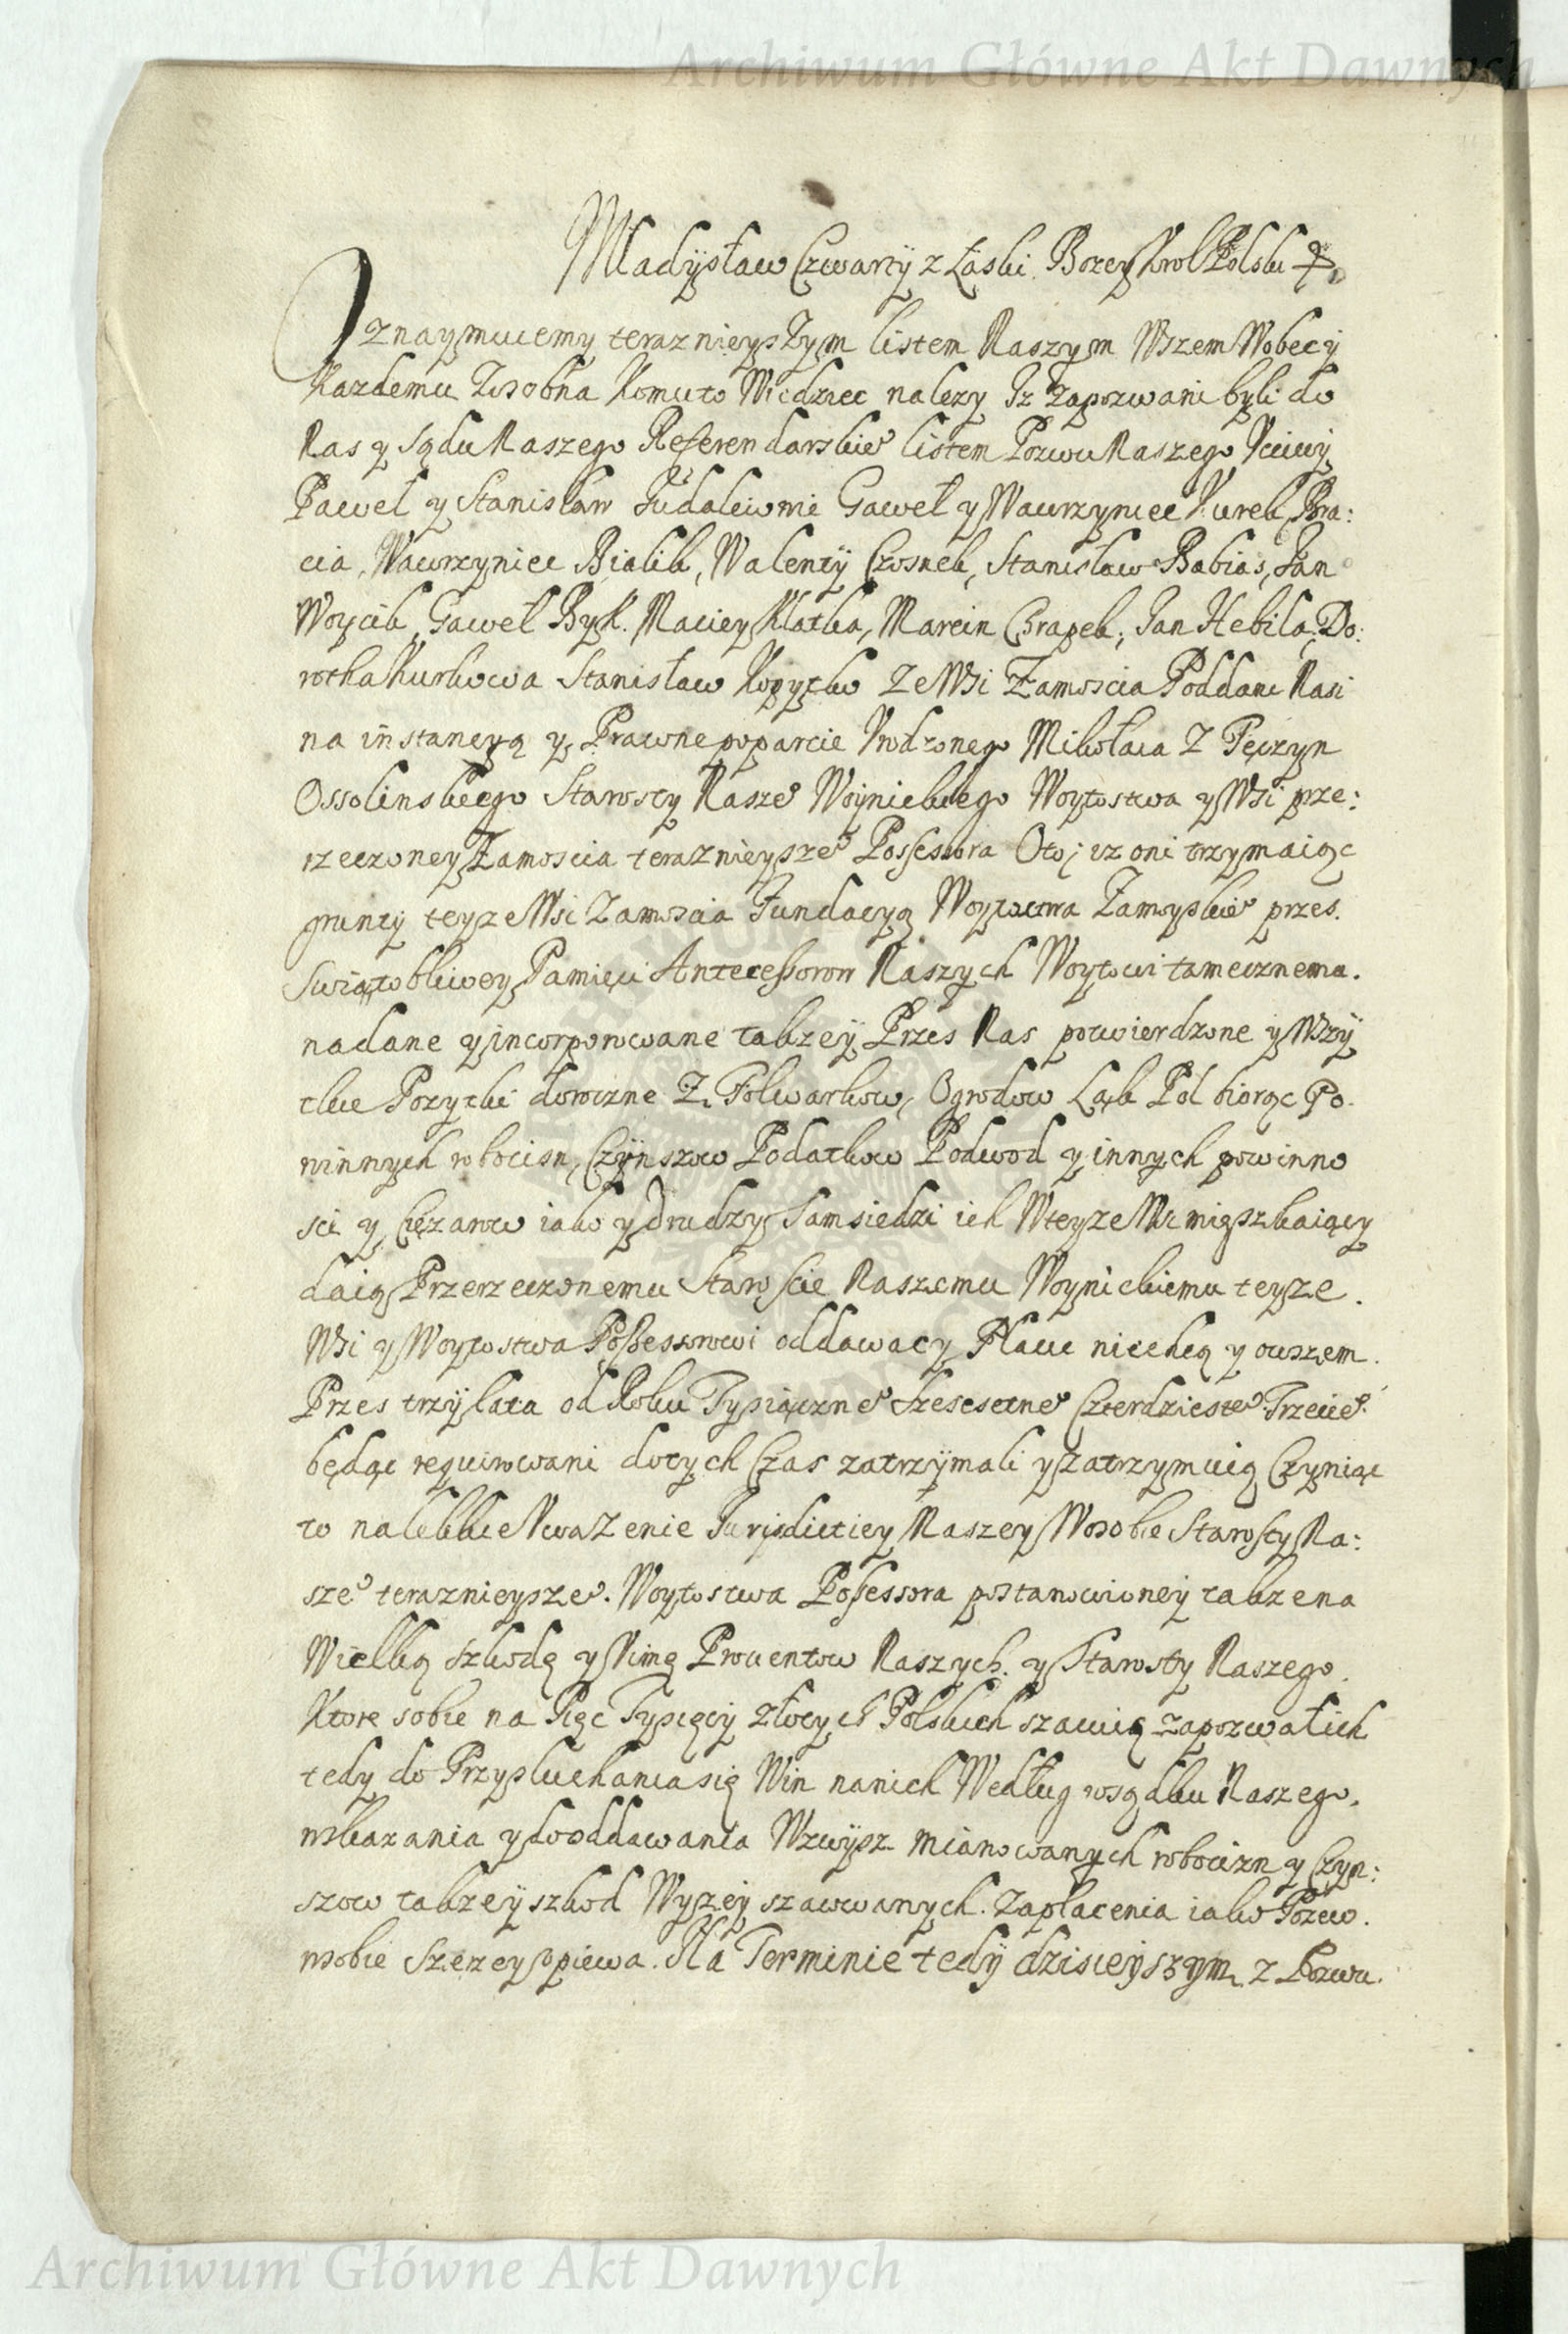 Archiwum Główne Akt Dawnych
Władysław Czwarty z Łaski Bozey Krol Polski &
Oznaymuiemy teraznieyszym listem Naszym Wszem Wobec y
Kazdemu Zosobna Komu to Wiedziec nalezy Iz Zapozwani byli do
Nas y Sądu Naszego Referendarskie° listem Pozwu Naszego Vcciwy
Paweł y Stanisław Gaweł y Wawrzyniec Kurek Bra:
cia, Wawrzyniec Bialik, Walenty Czosnek, Stanisław Babias, Jan
Woycik, Gaweł Byk. Maciey Klatka, Marcin Chrapek, Jan Hebila, Do:
rotha Kurkowa Stanisław Kopytko Ze Wsi Zamoscia Poddani Nasi
na instancyą y Prawne poparcie Vrodzonego Mikołaia Z Tęczyn
Ossolinskiego Starosty Nasze° Woynickiego Woytostwa y Wsi prze:
rzeczoney Zamoscia teraznieysze° Possessora Oto, iz oni trzymaiąc
grunty teyze Wsi Zamoscia Fundacyą Woytostwa Zamoyskie° przes.
Swiątobliwey Pamięci Antecessorow Naszych Woytowi tamecznemu.
nadane y incorporowane takzey Przes Nas potwierdzone y Wszy
tkie Pozytki doroczne Z Folwarkow, Ogrodow Ląk Pol biorąc Po.
winnych robocisn, Czynszow Podatkow Podwod y innych powinno
sci y Cięzarow iako y drudzy Samsiedzi ich Wteyze Wsi mięszkaiący
daią Przerzeczonemu Staroscie Naszemu Woynickiemu teyze.
Wsi y Woytostwa Possessorowi oddawac y Płacic niechcą y owszem.
Przes trzy lata od Roku Tysiączne° Szescsetne° Czterdzieste° Trzecie°
będąc requirowani dotych Czas zatrzymali y zatrzymuią Czyniąc
to na lekkie Vwazenie Jurisdictiey Naszey Wosobie Starosty Na:
sze° teraznieysze°. Woytostwa Possessora postanowioney takze na
Wielką szkodę y Vimę Prouentow Naszych. y Starosty Naszego.
Ktore sobie na Pięc Tysięcy złotych Polskich szacuią zapozwał ich
tedy do Przysluchania się Win nanich Według rosądku Naszego.
wskazania y do oddawania Wzwysz mianowanych robocizn y Czyn:
szow takzey szkod Wyzey szacowanych. Zapłacenia iako Pozew.
wsobie Szerzey opiewa. Na Terminie tedy dzisieyszym z Pozwu.
Archiwum Główne Akt Dawnych